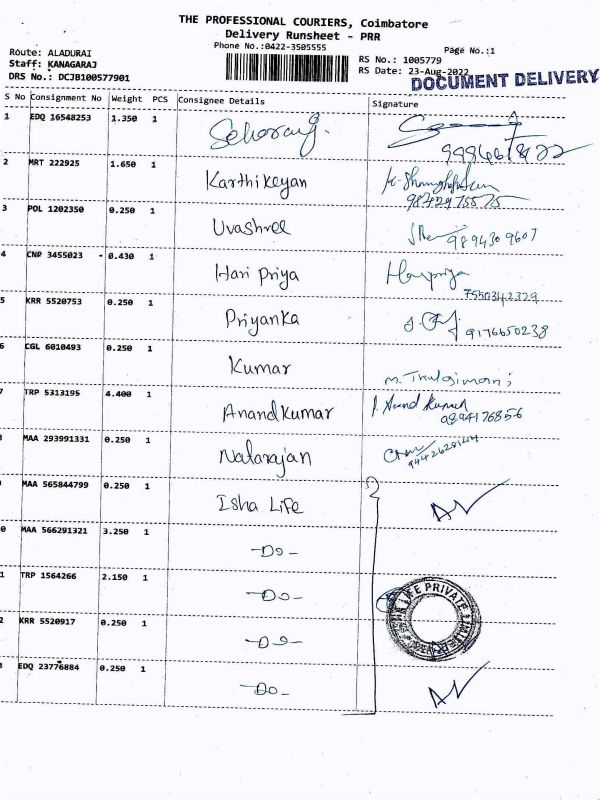 THE PROFESSIONAL COURIERS, Coimbatore
Delivery Runsheet - PRR
Phone No.:0422-3505555
Page No.:1
Route: ALADURAI
RS No.: 1005779
Staff: KANAGARAJ
RS Date: 23-Aug-2022
DRS No.: DCJB100577901
DOCUMENT DELIVERY
S No Consignment No Weight PCS Consignee Details Signature
1 EDQ 16548253 1.350 1
2 MRT 222925 1.650 1 Karthikeyan
9842975575
3 POL 1202350 0.250 1 Uvashree
9894309607
4 CNP 3455023 - 0.430 1 Hari Priya Haripriya
7550342329
5 KRR 5520753 0.250 1 Priyanka
9176650238
6 CGL 6010493 0.250 1 Kumar
7 TRP 5313195 4.400 1 Anandkumar Anand Kumar
MAA 293991331 0.250 1 Natarajan
MAA 565844799 0.250 1 Isha Life
0 MAA 566291321 3.250 1 -Do-
1 TRP 1564266 2.150 1 -Do-
LIFE PRIVATE LIMITED
2 KRR 5520917 0.250 1 -Do-
3 EDQ 23776884 0.250 1 -Do-